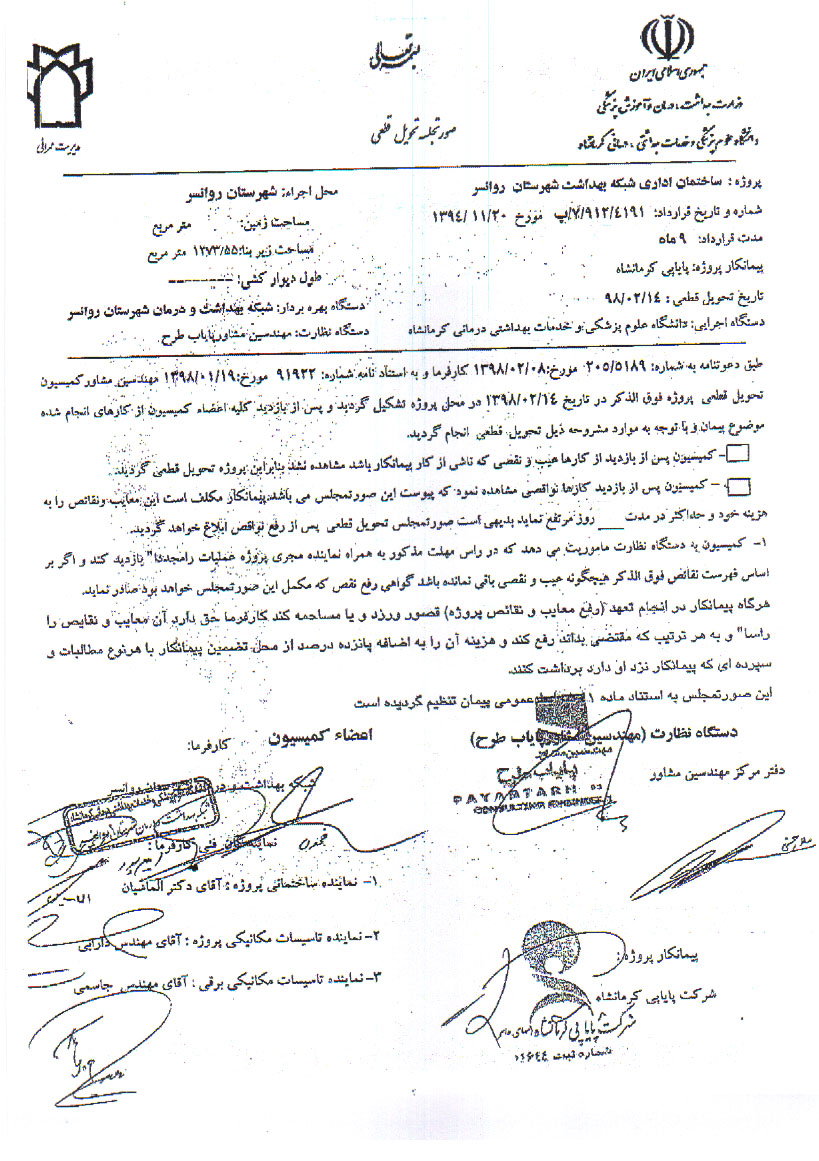 بسمه تعالی
جمهوری اسلامی ایران
وزارت بهداشت، درمان و آموزش پزشکی
دانشگاه علوم پزشکی و خدمات بهداشتی ، درمانی کرمانشاه
مدیریت عمرانی
صورتجلسه تحویل قطعی
پروژه : ساختمان اداری شبکه بهداشت شهرستان روانسر
محل اجراء: شهرستان روانسر
شماره و تاریخ قرارداد: ۷/۹۱۲/۴۱۹۱/پ مورخ ۱۳۹۴/۱۱/۲۰
مساحت زمین: متر مربع
مدت قرارداد: ۹ ماه
مساحت زیر بنا: ۱۲۷۳/۵۵ متر مربع
پیمانکار پروژه: پایاپی کرمانشاه
طول دیوار کشی: --------
تاریخ تحویل قطعی : ۹۸/۰۲/۱۴
دستگاه بهره بردار: شبکه بهداشت و درمان شهرستان روانسر
دستگاه اجرایی: دانشگاه علوم پزشکی و خدمات بهداشتی درمانی کرمانشاه
دستگاه نظارت: مهندسین مشاورپایاب طرح
طبق دعوتنامه به شماره: ۲۰۵/۵۱۸۹ مورخ:۱۳۹۸/۰۲/۰۸ کارفرما و به استناد نامه شماره: ۹۱۹۲۲ مورخ:۱۳۹۸/۰۱/۱۹ مهندسین مشاورکمیسیون
تحویل قطعی پروژه فوق الذکر در تاریخ ۱۳۹۸/۰۲/۱۴ در محل پروژه تشکیل گردید و پس از بازدید کلیه اعضاء کمیسیون از کارهای انجام شده
موضوع پیمان و با توجه به موارد مشروحه ذیل تحویل قطعی انجام گردید.
- کمیسیون پس از بازدید از کارها عیب و نقصی که ناشی از کار پیمانکار باشد مشاهده نشد بنابراین پروژه تحویل قطعی گردید.
- کمیسیون پس از بازدید کارها نواقصی مشاهده نمود که پیوست این صورتمجلس می باشد.پیمانکار مکلف است این معایب ونقائص را به
هزینه خود و حداکثر در مدت ___ روز مرتفع نماید بدیهی است صورتمجلس تحویل قطعی پس از رفع نواقص ابلاغ خواهد گردید.
۱- کمیسیون به دستگاه نظارت ماموریت می دهد که در راس مهلت مذکور به همراه نماینده مجری پروژه عملیات رامجددا" بازدید کند و اگر بر
اساس فهرست نقائص فوق الذکر هیچگونه عیب و نقصی باقی نمانده باشد گواهی رفع نقص که مکمل این صورتمجلس خواهد بود صادر نماید.
هرگاه پیمانکار در انجام تعهد (رفع معایب و نقائص پروژه) قصور ورزد و یا مسامحه کند کارفرما حق دارد آن معایب و نقایص را
راسا" و به هر ترتیب که مقتضی بداند رفع کند و هزینه آن را به اضافه پانزده درصد از محل تضمین پیمانکار با هرنوع مطالبات و
سپرده ای که پیمانکار نزد او دارد برداشت کنند.
این صورتمجلس به استناد ماده عمومی پیمان تنظیم گردیده است
دستگاه نظارت (مهندسین مشاورپایاب طرح)
اعضاء کمیسیون
کارفرما:
مهندسین مشاور
پایاب طرح
PAYABTARH
CONSULTING ENGINEERS
دفتر مرکز مهندسین مشاور
شبکه بهداشت و در
نمایندگان فنی کارفرما :
۱- نماینده ساختمانی پروژه : آقای دکتر الماشیان
۲- نماینده تاسیسات مکانیکی پروژه : آقای مهندس دارابی
۳- نماینده تاسیسات مکانیکی برقی : آقای مهندس جاسمی
پیمانکار پروژه :
شرکت پایاپی کرمانشاه
شماره ثبت